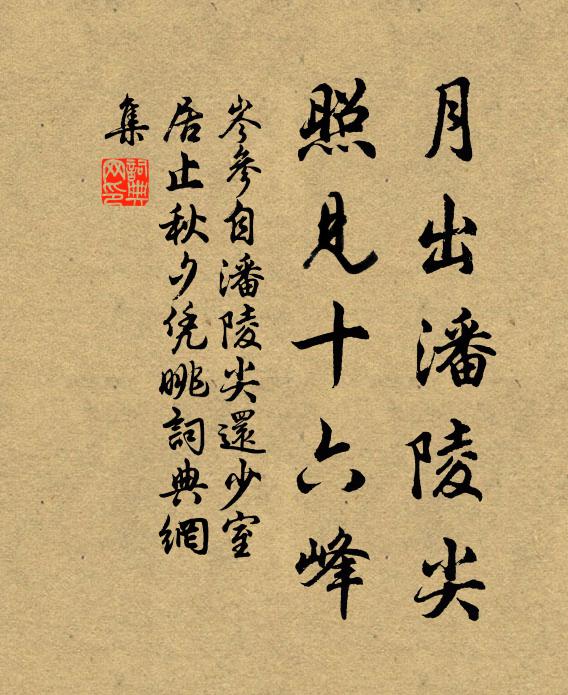 月出潘陵尖
照见十六峰
岑參自潘陵尖還少室
居止秋夕凭眺詞典網
集
詞典
网印